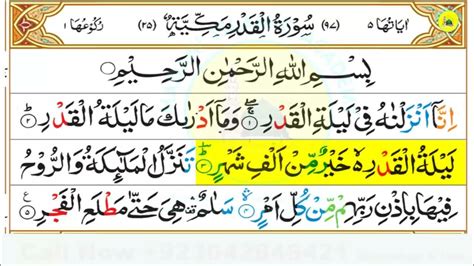 اٰيَاتُهَا ٥ (٩٧) سُوْرَةُ الْقَدْرِ مَكِّيَّةٌ (٢٥) رُكُوْعُهَا ١
بِسْمِ اللّٰهِ الرَّحْمٰنِ الرَّحِيْمِ
اِنَّاۤ اَنْزَلْنٰهُ فِيْ لَيْلَةِ الْقَدْرِ ۚۖ ١ وَمَاۤ اَدْرٰىكَ مَا لَيْلَةُ الْقَدْرِ ؕ ٢
لَيْلَةُ الْقَدْرِ ۙ خَيْرٌ مِّنْ اَلْفِ شَهْرٍ ؕ ٣ تَنَزَّلُ الْمَلٰٓئِكَةُ وَالرُّوْحُ
فِيْهَا بِاِذْنِ رَبِّهِمْ ۚ مِنْ كُلِّ اَمْرٍ ۙ ٤ سَلٰمٌ ۛ هِيَ حَتّٰى مَطْلَعِ الْفَجْرِ ٥ ع
Call Now +923042845421